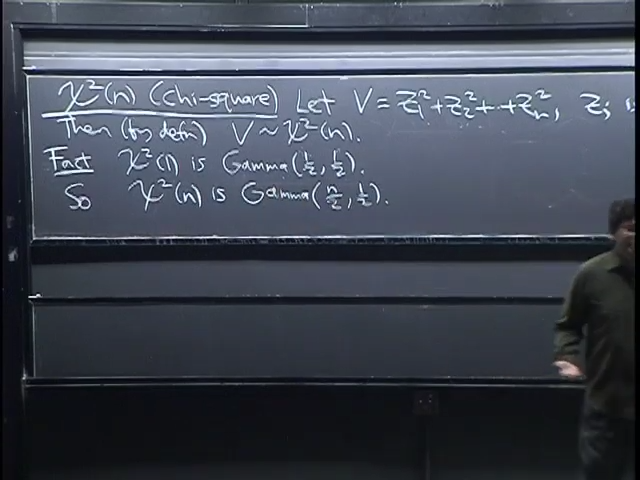 χ²(n) (chi-square) Let V = Z₁² + Z₂² + ... + Zₙ², Zⱼ
Then (by defn) V ~ χ²(n).
Fact χ²(1) is Gamma(1/2, 1/2).
So χ²(n) is Gamma(n/2, 1/2).